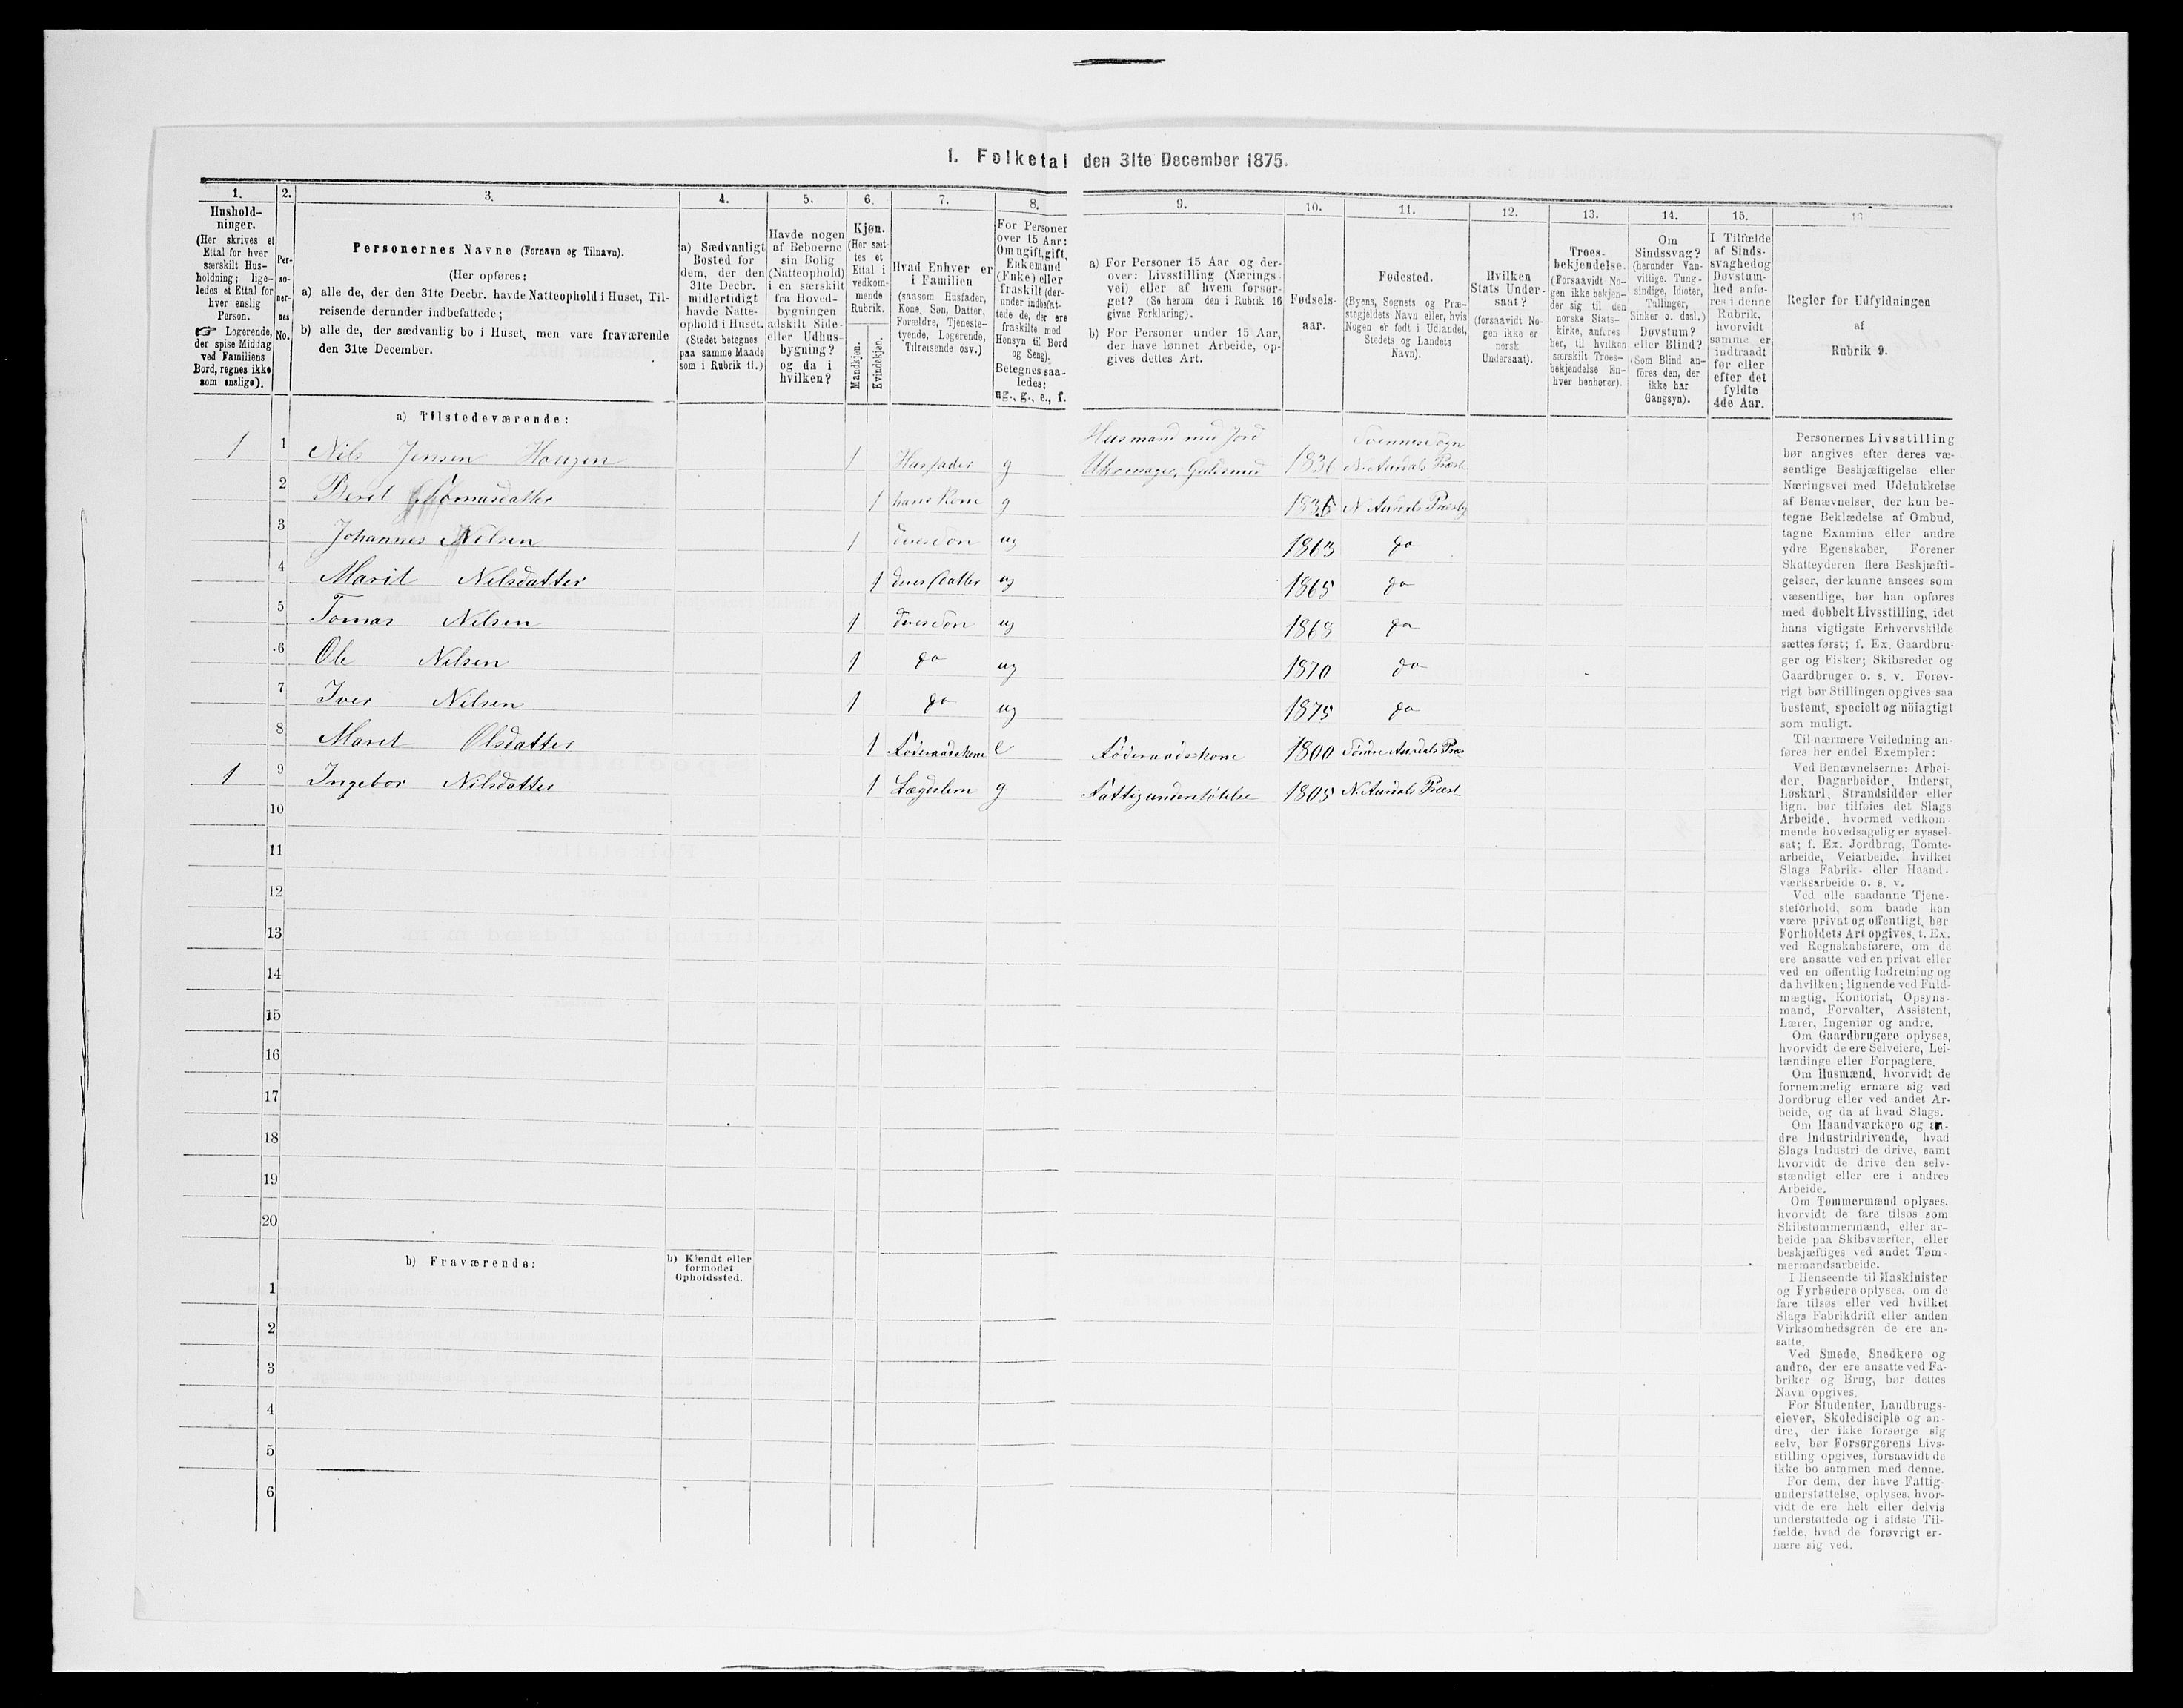 1. Folketal den 31te December 1875.
1.
Hushold-
ninger.
(Her skrives et
Ettal for hver
særskilt Hus-
holdning; lige-
ledes et Ettal for
hver enslig
Person.
☞ Logerende,
der spise Middag
ved Familiens
Bord, regnes ikke
som enslige).
2.
Per-
so-
ner-
nes
No.
3.
Personernes Navne (Fornavn og Tilnavn).
(Her opføres:
a) alle de, der den 31te Decbr. havde Natteophold i Huset, Til-
reisende derunder indbefattede;
b) alle de, der sædvanlig bo i Huset, men vare fraværende
den 31te December.
4.
a) Sædvanligt
Bosted for
dem, der den
31te Decbr.
midlertidigt
havde Natte-
ophold i Huset.
(Stedet betegnes
paa samme Maade
som i Rubrik 11.)
5.
Havde nogen
af Beboerne
sin Bolig
(Natteophold)
i en særskilt
fra Hoved-
bygningen
adskilt Side-
eller Udhus-
bygning?
og da i
hvilken?
6.
Kjøn.
(Her sæt-
tes et
Ettal i
vedkom-
mende
Rubrik.
Mandkjøn.
Kvindekjøn.
7.
Hvad Enhver er
i Familien
(saasom Husfader,
Kone, Søn, Datter,
Forældre, Tjeneste-
tyende, Logerende,
Tilreisende osv.)
8.
For Personer
over 15 Aar:
Om ugift, gift,
Enkemand
(Enke) eller
fraskilt (der-
under indbefat-
tede de, der ere
fraskilte med
Hensyn til Bord
og Seng).
Betegnes saa-
ledes:
ug., g., e., f.
9.
a) For Personer 15 Aar og der-
over: Livsstilling (Nærings-
vei) eller af hvem forsør-
get? (Se herom den i Rubrik 16
givne Forklaring).
b) For Personer under 15 Aar,
der have lønnet Arbeide, op-
gives dettes Art.
10.
Fødsels-
aar.
11.
Fødested.
(Byens, Sognets og Præ-
stegjeldets Navn eller, hvis
Nogen er født i Udlandet,
Stedets og Landets
Navn).
12.
Hvilken
Stats Under-
saat?
(forsaavidt No-
gen ikke er
norsk
Undersaat).
13.
Troes-
bekjendelse.
(Forsaavidt No-
gen ikke bekjen-
der sig til den
norske Stats-
kirke, anføres
her, til hvilken
særskilt Troes-
bekjendelse En-
hver henhører).
14.
Om
Sindssvag?
(herunder Van-
vittige, Tung-
sindige, Idioter,
Tullinger,
Sinker o. desl.)
Døvstum?
eller Blind?
(Som Blind an-
føres den, der
ikke har
Gangsyn).
15.
I Tilfælde
af Sinds-
svaghed og
Døvstum-
hed anfø-
res i denne
Rubrik,
hvorvidt
samme er
indtraadt
før eller
efter det
fyldte
4de Aar.
16
Regler for Udfyldningen
af
Rubrik 9.
a) Tilstedeværende:
1 1 Nils Jensen Haugen 1 Husfader g Husmand med Jord Uhrmager, Guldsmed Svennes Sogn N. Aurdals Præst
2 Berit Thomasdatter 1 hans Kone g N. Aurdals Præstg
3 Johannes Nilsen 1 deres Søn ug 1863 do
4 Marit Nilsdatter 1 deres Datter ug 1865 do
5 Tomas Nilsen 1 deres Søn ug 1868 do
6 Ole Nilsen 1 do ug 1870 do
7 Iver Nilsen 1 do ug 1875 do
8 Marit Olsdatter 1 Føderaadskone e Føderaadskone 1800 Søndre Aurdals Præs
1 9 Ingebor Nilsdatter 1 Lægdslem g Fattigunderstøtelse 1805 N. Aurdals Præst
10
11
12
13
14
15
16
17
18
19
20
b) Fraværende:
b) Kjendt eller
formodet
Opholdssted.
1
2
3
4
5
6
Personernes Livsstilling
bør angives efter deres væ-
sentlige Beskjæftigelse eller
Næringsvei med Udelukkelse
af Benævnelser, der kun be-
tegne Beklædelse af Ombud,
tagne Examina eller andre
ydre Egenskaber. Forener
Skatteyderen flere Beskjæfti-
gelser, der kunne ansees som
væsentlige, bør han opføres
med dobbelt Livsstilling, idet
hans vigtigste Erhvervskilde
sættes først; f. Ex. Gaardbru-
ger og Fisker; Skibsreder og
Gaardbruger o. s. v. Forøv-
rigt bør Stillingen opgives saa
bestemt, specielt og nöiagtigt
som muligt.
Til nærmere Veiledning an-
føres her endel Exempler:
Ved Benævnelserne: Arbei-
der, Dagarbeider, Inderst,
Løskarl, Strandsidder eller
lign. bør tilføies det Slags
Arbeide, hvormed vedkom-
mende hovedsagelig er syssel-
sat; f. Ex. Jordbrug, Tomte-
arbeide, Veiarbeide, hvilket
Slags Fabrik- eller Haand-
værksarbeide o. s. v.
Ved alle saadanne Tjene-
steforhold, som baade kan
være privat og offentligt, bør
Forholdets Art opgives, t. Ex.
ved Regnskabsførere, om de
ere ansatte ved en privat eller
ved en offentlig Indretning og
da hvilken; lignende ved Fuld-
mægtig, Kontorist, Opsyns-
mand, Forvalter, Assistent,
Lærer, Ingeniør og andre.
Om Gaardbrugere oplyses,
hvorvidt de ere Selveiere, Lei-
lændinge eller Forpagtere.
Om Husmænd, hvorvidt de
fornemmelig ernære sig ved
Jordbrug eller ved andet Ar-
beide, og da af hvad Slags.
Om Haandværkere og an-
dre Industridrivende, hvad
Slags Industri de drive, samt
hvorvidt de drive den selv-
stændigt eller ere i andres
Arbeide.
Om Tømmermænd oplyses,
hvorvidt de fare tilsøs som
Skibstømmermænd, eller ar-
beide paa Skibsværfter, eller
beskjæftiges ved andet Tøm-
mermandsarbeide.
I Henseende til Maskinister
og Fyrbødere oplyses, om de
fare tilsøs eller ved hvilket
Slags Fabrikdrift eller anden
Virksomhedsgren de ere an-
satte.
Ved Smede, Snedkere og
andre, der ere ansatte ved Fa-
briker og Brug, bør dettes
Navn opgives.
For Studenter, Landbrugs-
elever, Skoledisciple og an-
dre, der ikke forsørge sig
selv, bør Forsørgerens Livs-
stilling opgives, forsaavidt de
ikke bo sammen med denne.
For dem, der have Fattig-
understøttelse, oplyses, hvor-
vidt de ere helt eller delvis
understøttede og i sidste Til-
fælde, hvad de forøvrigt er-
nære sig ved.